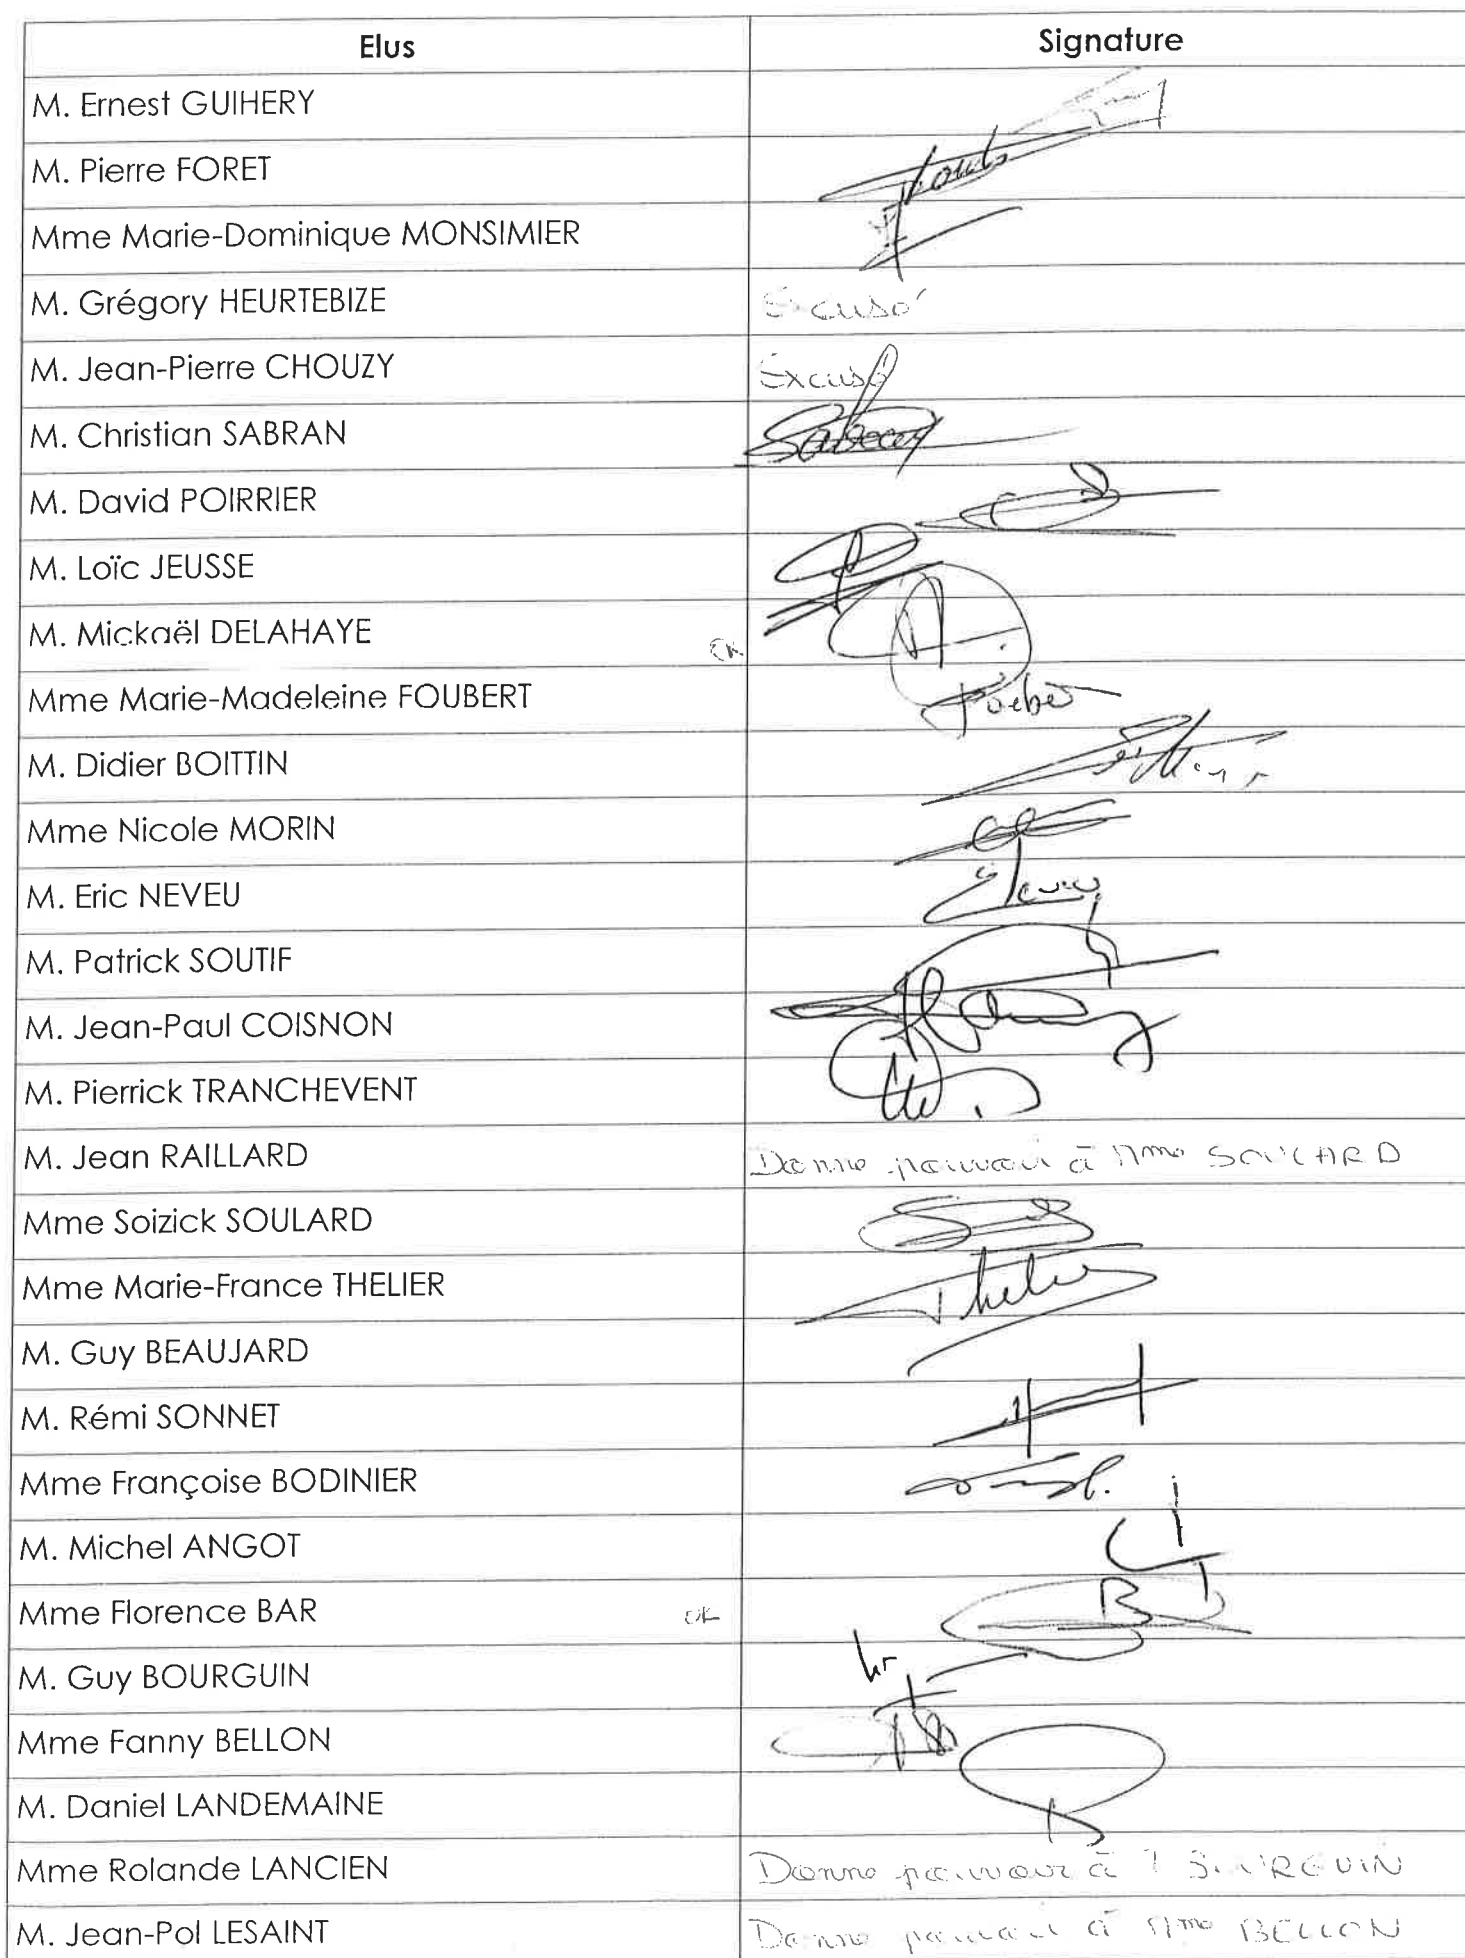 Elus Signature
M. Ernest GUIHERY
M. Pierre FORET
Mme Marie-Dominique MONSIMIER
M. Grégory HEURTEBIZE Excusé
M. Jean-Pierre CHOUZY Excusé
M. Christian SABRAN
M. David POIRRIER
M. Loïc JEUSSE
M. Mickaël DELAHAYE
Mme Marie-Madeleine FOUBERT
M. Didier BOITTIN
Mme Nicole MORIN
M. Eric NEVEU
M. Patrick SOUTIF
M. Jean-Paul COISNON
M. Pierrick TRANCHEVENT
M. Jean RAILLARD Donne pouvoir à Mme SOULARD
Mme Soizick SOULARD
Mme Marie-France THELIER Thelier
M. Guy BEAUJARD
M. Rémi SONNET
Mme Françoise BODINIER
M. Michel ANGOT
Mme Florence BAR OK
M. Guy BOURGUIN
Mme Fanny BELLON
M. Daniel LANDEMAINE
Mme Rolande LANCIEN Donne pouvoir à BOURGUIN
M. Jean-Pol LESAINT Donne pouvoir à Mme BELLON